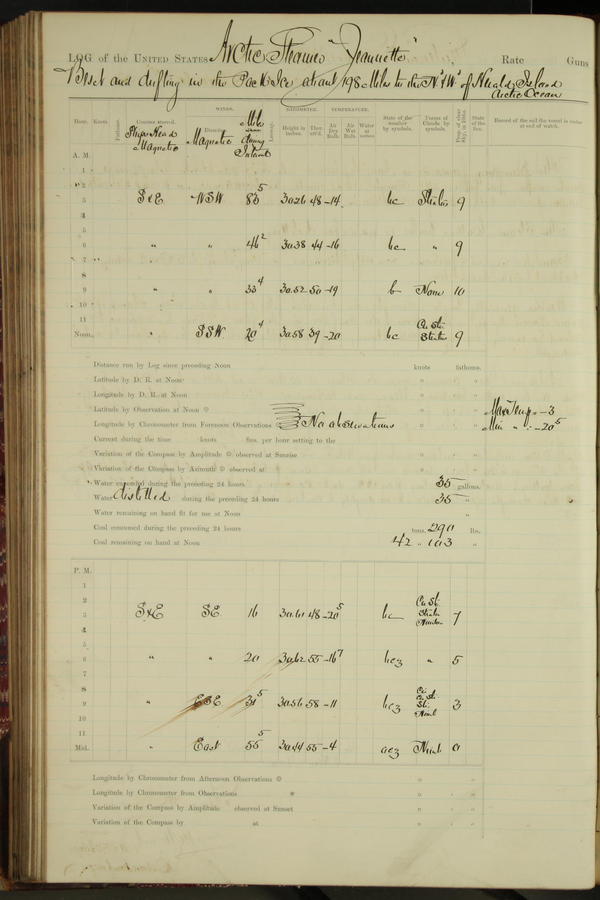 LOG of the UNITED STATES Arctic Steamer "Jeannette", Rate Guns
Beset and drifting in the Pack Ice about 198 Miles to the N'd & W'd of Herald Island
Arctic Ocean
WINDS. BAROMETER. TEMPERATURE.
Hour. Knots. Fathoms. Courses steered. Direction. Leeway. Height in inches. Ther. att'd. Air Dry Bulb. Air Wet Bulb. Water at surface. State of the weather by symbols. Forms of Clouds by symbols. Prop. of clear Sky, in 10ths. State of the Sea. Record of the sail the vessel is under at end of watch.
Ship's Head Magnetic Magnetic Miles during Interval
A. M.
1
2
3 S & E WSW 85 5 30.26 48 -14 bc Stratus 9
4
5
6 " " 46 2 30.38 44 -16 bc " 9
7
8
9 " " 33 4 30.52 50 -19 b None 10
10
11
Noon. " SSW 20 4 30.58 39 -20 bc Cir. St. Stratus 9
Distance run by Log since preceding Noon knots fathoms.
Latitude by D. R. at Noon
Longitude by D. R. at Noon
Latitude by Observation at Noon Max Temp. -3
Longitude by Chronometer from Forenoon Observations No observations Min " -20 5
Current during the time knots fms. per hour setting to the
Variation of the Compass by Amplitude observed at Sunrise
Variation of the Compass by Azimuth observed at
Water expended during the preceding 24 hours 35 gallons.
Water distilled during the preceding 24 hours 35 "
Water remaining on hand fit for use at Noon "
Coal consumed during the preceding 24 hours tons. 290 lbs.
Coal remaining on hand at Noon 42 " 103 "
P. M.
1
2
3 S & E SE 16 30.61 48 -20 5 bc Cir. St. Stratus 7
4
5
6 " " 20 30.62 55 -16 7 bcz " 5
7
8
9 " ESE 31 5 30.56 58 -11 bcz 3
10
11
Mid. " East 55 5 30.44 55 -4 ocz Nimb 0
Longitude by Chronometer from Afternoon Observations
Longitude by Chronometer from Observations
Variation of the Compass by Amplitude observed at Sunset
Variation of the Compass by at